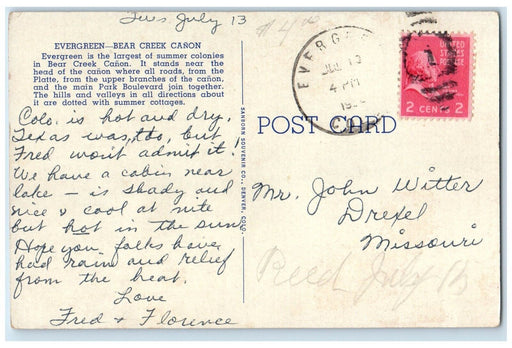 Tues July 13
#4.00
EVERGREEN—BEAR CREEK CAÑON
Evergreen is the largest of summer colonies
in Bear Creek Cañon. It stands near the
head of the cañon where all roads, from the
Platte, from the upper branches of the canon,
and the main Park Boulevard join together.
The hills and valleys in all directions about
it are dotted with summer cottages.
Colo. is hot and dry.
Texas was, too, but
Fred won't admit it!
We have a cabin near
lake - is shady and
nice & cool at nite
but hot in the sun.
Hope you folks have
had rain and relief
from the heat.
Love
Fred & Florence
SANBORN SOUVENIR CO., DENVER, COLO.
JUL 13
4 PM
UNITED
STATES
POSTAGE
2 CENTS 2
POST CARD
Mr. John Witter
Drexel
Missouri
Recd July 15